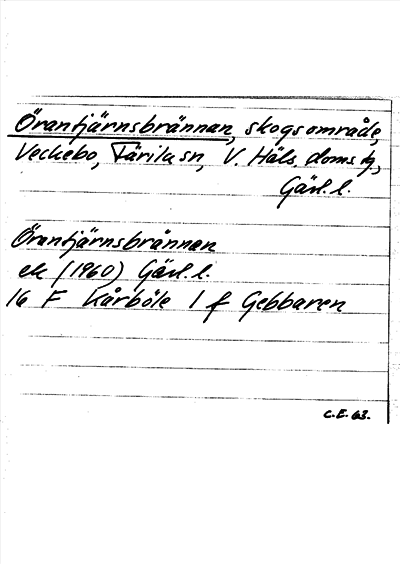 Örantjärnsbrännan, skogsområde,
Veckebo, Färila sn, V. Häls. doms.,
Gävl. l.
Örantjärnsbrännan
ek (1960) Gävl. l.
16 F Kårböle 1 f Gebbaren
C.E. 63.